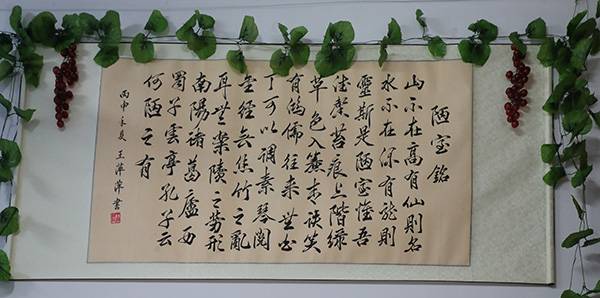 陋室銘
山不在高有仙則名
水不在深有龍則
靈斯是陋室惟吾
德馨苔痕上階綠
草色入簾青談笑
有鴻儒往來無白
丁可以調素琴閱
金經無絲竹之亂
耳無案牘之勞形
南陽諸葛廬西
蜀子雲亭孔子云
何陋之有
丙申年夏王萍萍書